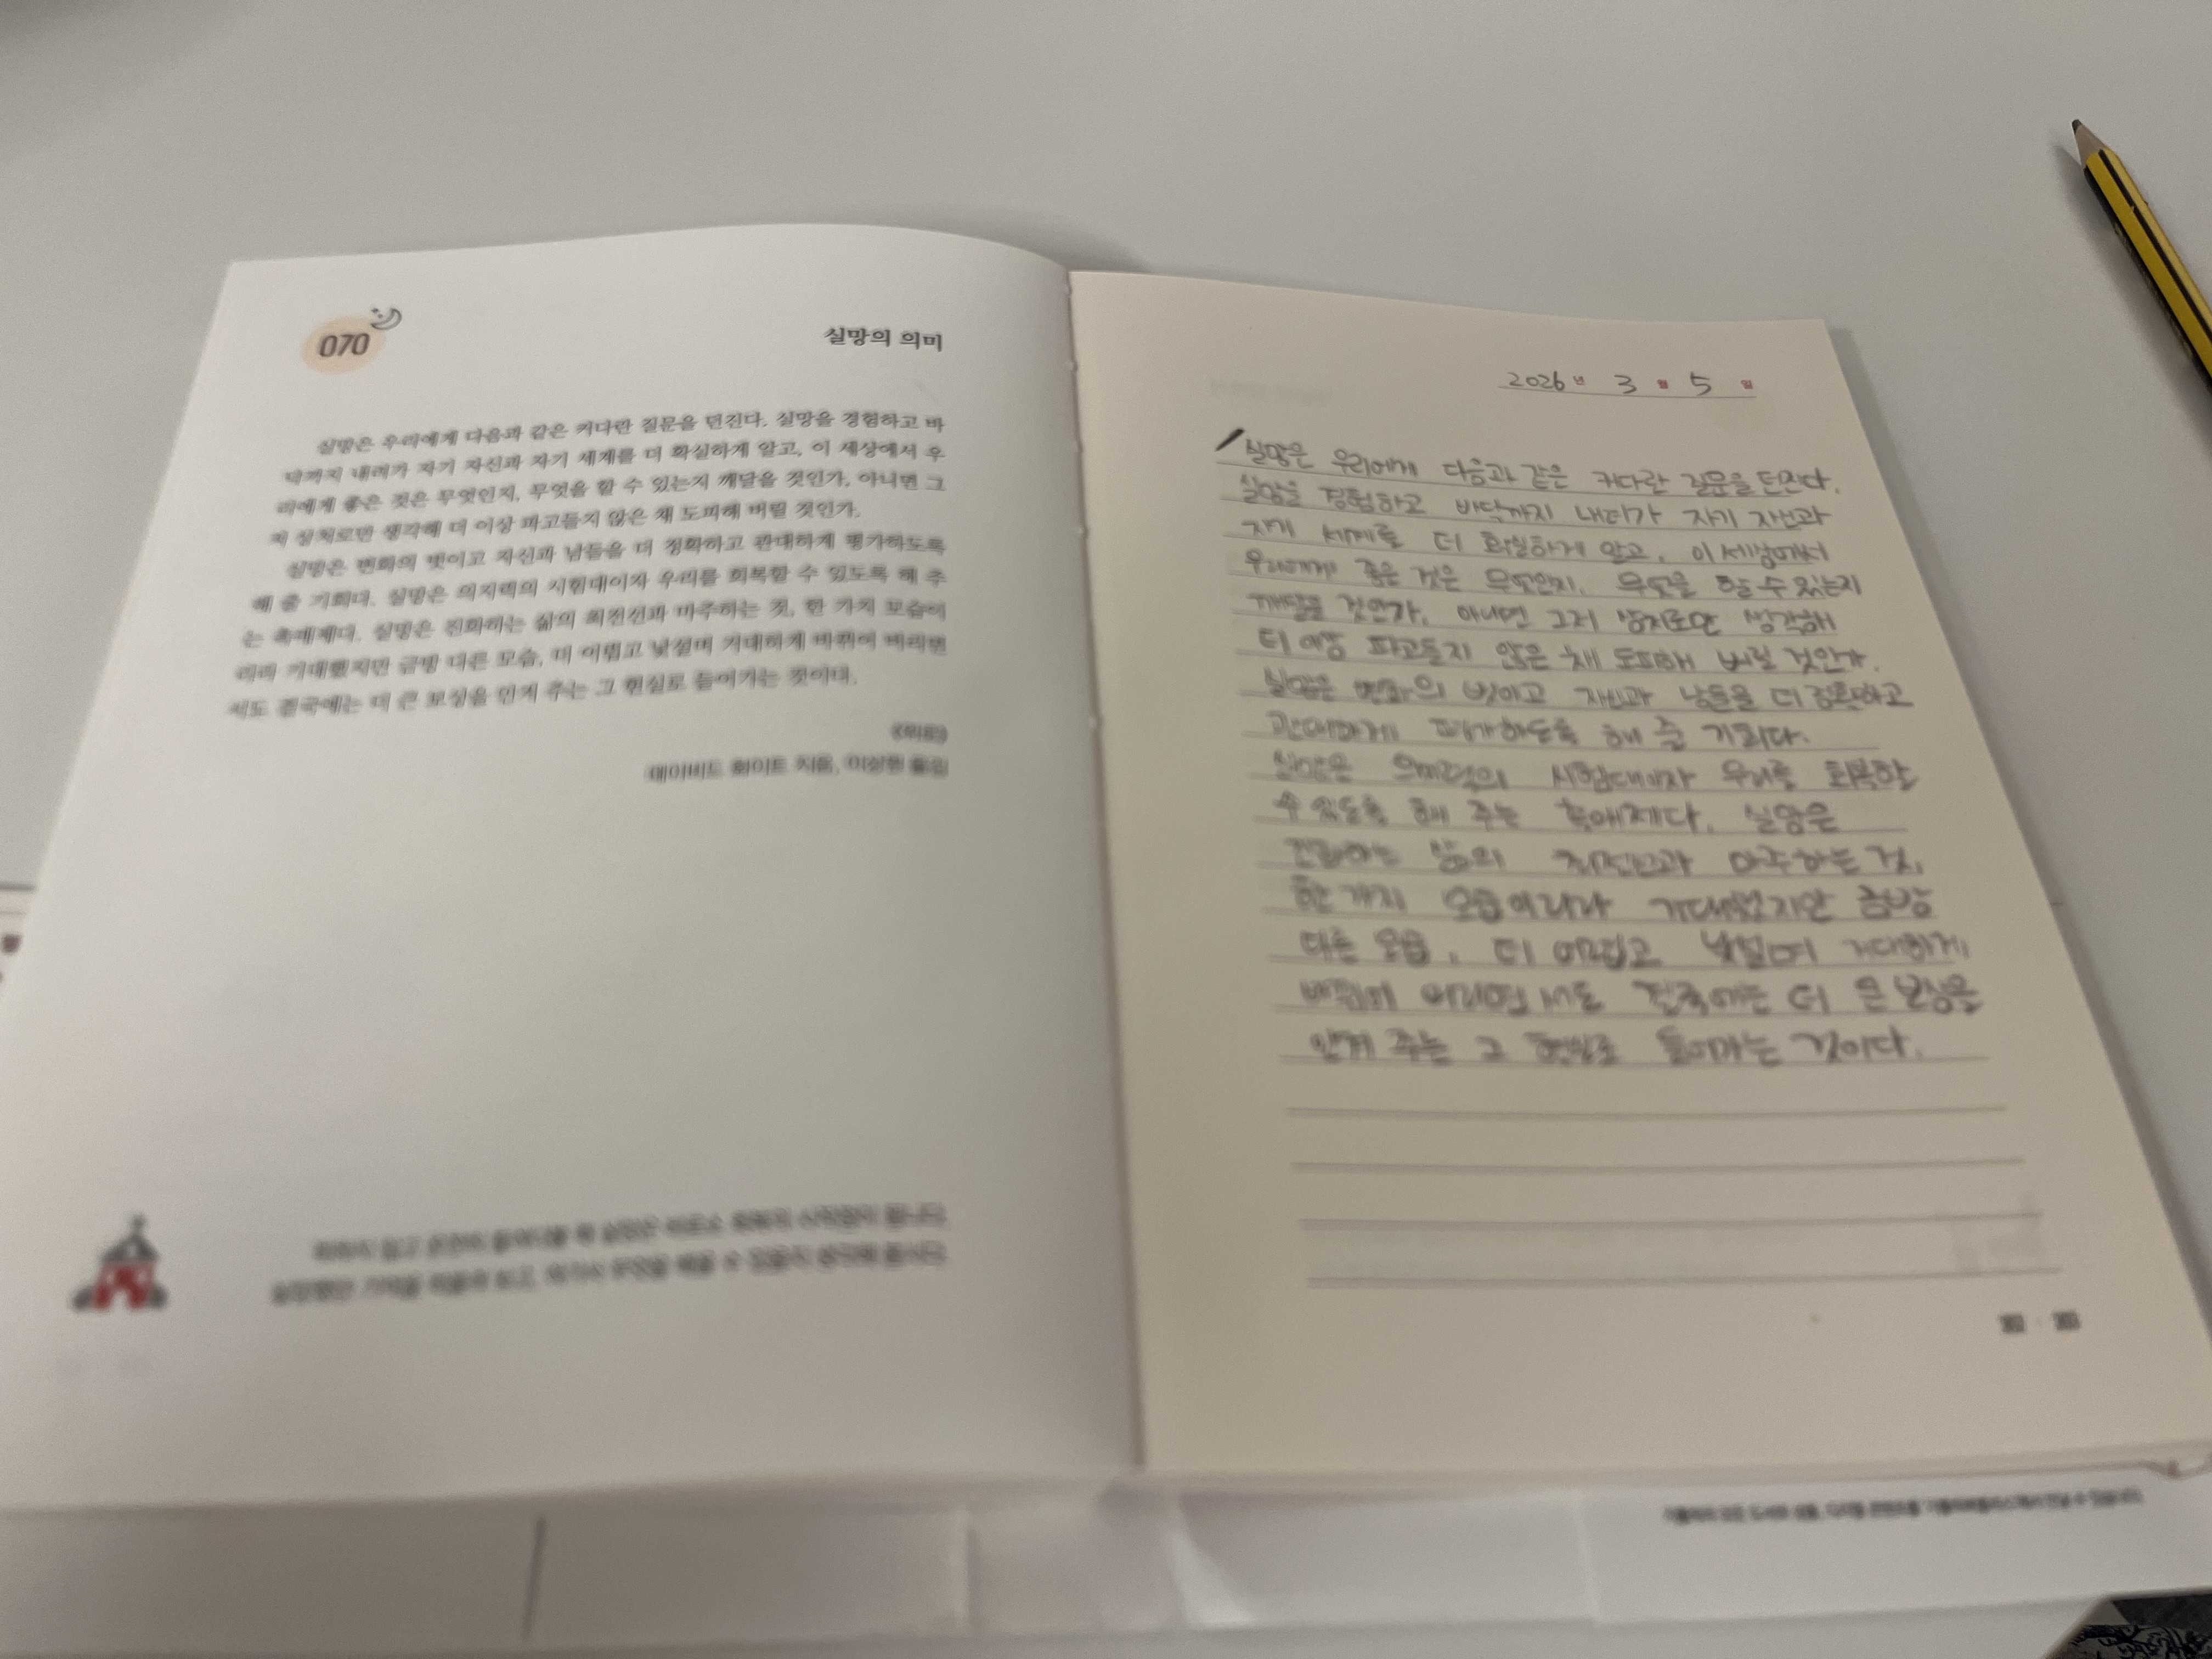 070
실망의 의미
실망은 우리에게 다음과 같은 커다란 질문을 던진다. 실망을 경험하고 바
닥까지 내려가 자기 자신과 자기 세계를 더 확실하게 알고, 이 세상에서 우
리에게 좋은 것은 무엇인지, 무엇을 할 수 있는지 깨달을 것인가, 아니면 그
저 상처로만 생각해 더 이상 파고들지 않은 채 도피해 버릴 것인가.
실망은 변화의 벗이고 자신과 남들을 더 정확하고 관대하게 평가하도록
해 줄 기회다. 실망은 의지력의 시험대이자 우리를 회복할 수 있도록 해 주
는 촉매제다. 실망은 진화하는 삶의 최전선과 마주하는 것, 한 가지 모습이
리라 기대했지만 금방 다른 모습, 더 어렵고 낯설며 거대하게 바뀌어 버리면
서도 결국에는 더 큰 보상을 안겨 주는 그 현실로 들어가는 것이다.
데이비드 화이트 지음, 이상원 옮김
2026년 3월 5일
실망은 우리에게 다음과 같은 커다란 질문을 던진다.
실망을 경험하고 바닥까지 내려가 자기 자신과
자기 세계를 더 확실하게 알고, 이 세상에서
우리에게 좋은 것은 무엇인지, 무엇을 할 수 있는지
깨달을 것인가, 아니면 그저 상처로만 생각해
더 이상 파고들지 않은 채 도피해 버릴 것인가.
실망은 변화의 벗이고 자신과 남들을 더 정확하고
관대하게 평가하도록 해 줄 기회다.
실망은 의지력의 시험대이자 우리를 회복할
수 있도록 해 주는 촉매제다. 실망은
진화하는 삶의 최전선과 마주하는 것,
한 가지 모습이리라 기대했지만 금방
다른 모습, 더 어렵고 낯설며 거대하게
바뀌어 버리면서도 결국에는 더 큰 보상을
안겨 주는 그 현실로 들어가는 것이다.